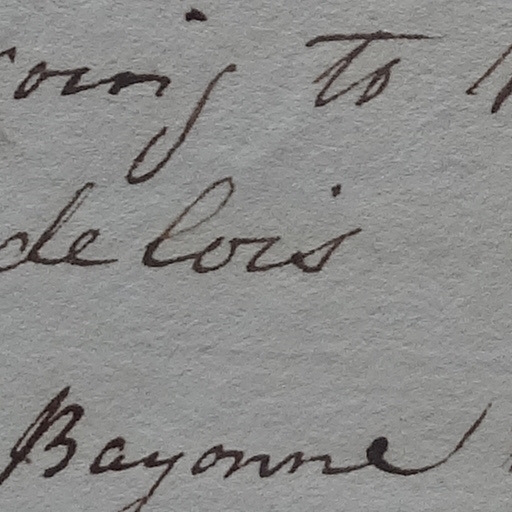 going to
de lois
Bayonne